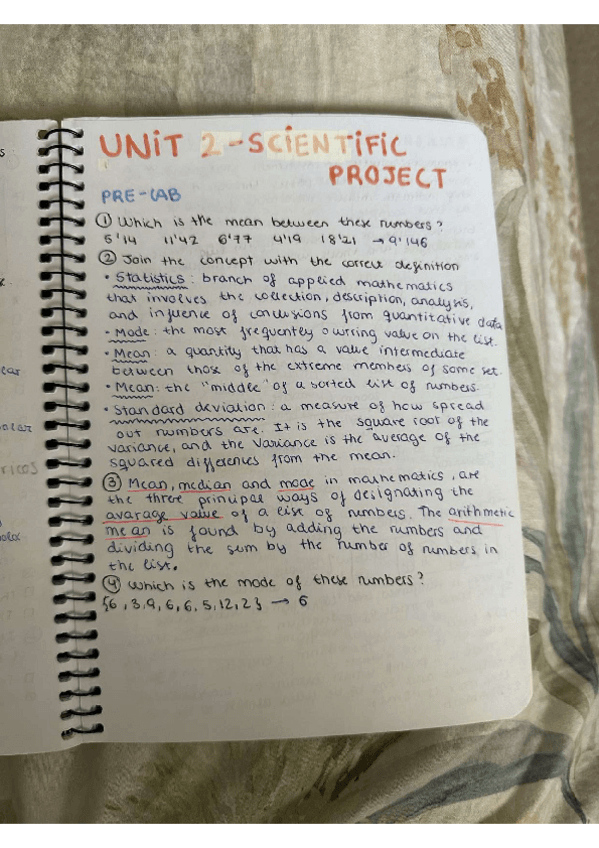 UNIT 2 - SCIENTIFIC
PROJECT
PRE-LAB
① Which is the mean between these numbers?
5'14 11'42 6'77 4'19 18'21 → 9'146
② Join the concept with the correct definition
• Statistics: branch of applied mathematics
that involves the collection, description, analysis,
and influence of conclusions from quantitative data
• Mode: the most frequently ocurring value on the list.
• Mean: a quantity that has a value intermediate
between those of the extreme members of some set.
• Mean: the "middle" of a sorted list of numbers.
• Standard deviation: a measure of how spread
out numbers are. It is the square root of the
variance, and the variance is the average of the
squared differences from the mean.
③ Mean, median and mode in mathematics, are
the three principal ways of designating the
avarage value of a list of numbers. The arithmetic
mean is found by adding the numbers and
dividing the sum by the number of numbers in
the list.
④ Which is the mode of these numbers?
{6, 3, 9, 6, 6, 5, 12, 2} → 6